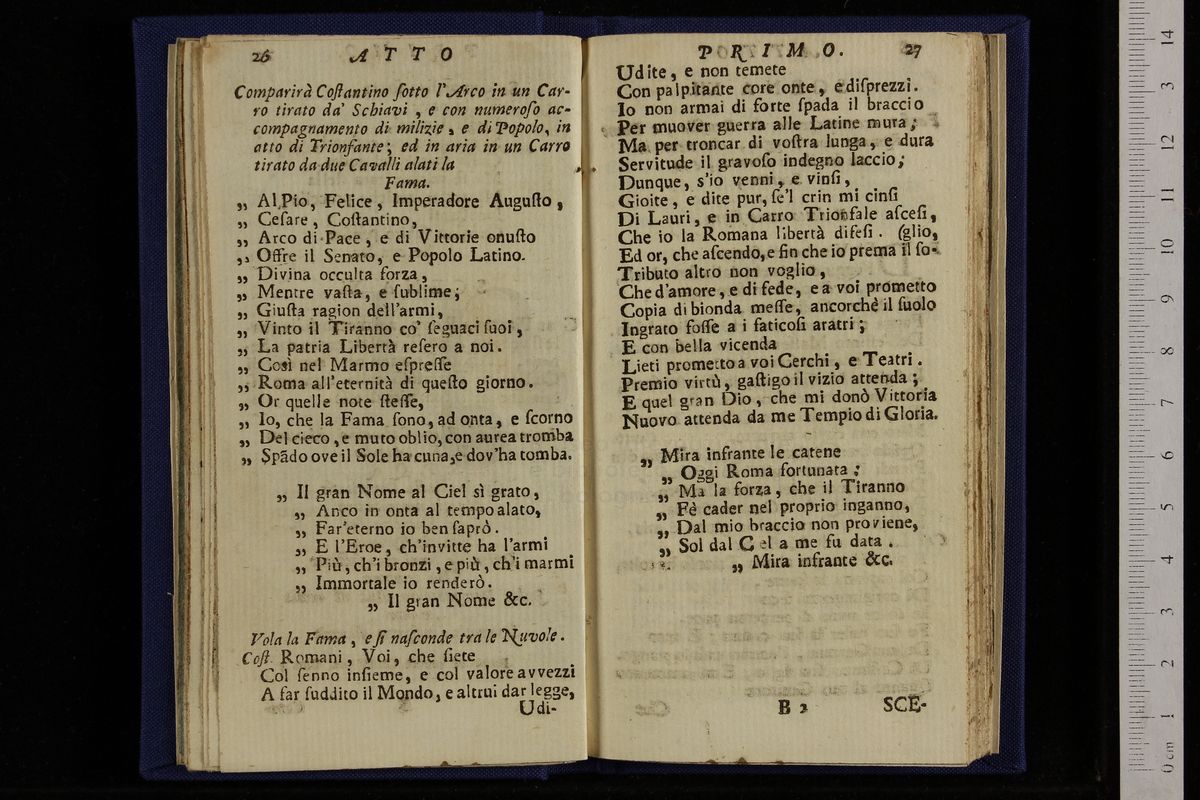 26 ATTO
Comparirà Coſtantino ſotto l'Arco in un Car-
ro tirato da' Schiavi , e con numeroſo ac-
compagnamento di milizie , e di Popolo, in
atto di Trionfante; ed in aria in un Carro
tirato da due Cavalli alati la
Fama.
„ Al Pio, Felice, Imperadore Auguſto ,
„ Ceſare, Coſtantino,
„ Arco di Pace, e di Vittorie onuſto
„ Offre il Senato, e Popolo Latino.
„ Divina occulta forza,
„ Mentre vaſta, e ſublime;
„ Giuſta ragion dell'armi,
„ Vinto il Tiranno co' ſeguaci ſuoi ,
„ La patria Libertà reſero a noi.
„ Così nel Marmo eſpreſſe
„ Roma all'eternità di queſto giorno.
„ Or quelle note ſteſſe,
„ Io, che la Fama ſono, ad onta, e ſcorno
„ Del cieco, e muto oblio, con aurea tromba
„ Spãdo ove il Sole ha cuna, e dov'ha tomba.
„ Il gran Nome al Ciel sì grato,
„ Anco in onta al tempo alato,
„ Far'eterno io ben ſaprò.
„ E l'Eroe, ch'invitte ha l'armi
„ Più, ch'i bronzi, e più, ch'i marmi
„ Immortale io renderò.
„ Il gran Nome &c.
Vola la Fama , e ſi naſconde tra le Nuvole.
Coſt. Romani, Voi, che ſiete
Col ſenno inſieme, e col valore avvezzi
A far ſuddito il Mondo, e altrui dar legge,
Udi-
PRIMO. 27
Udite, e non temete
Con palpitante core onte, e diſprezzi.
Io non armai di forte ſpada il braccio
Per muover guerra alle Latine mura;
Ma per troncar di voſtra lunga, e dura
Servitude il gravoſo indegno laccio;
Dunque, s'io venni, e vinſi,
Gioite, e dite pur, ſe'l crin mi cinſi
Di Lauri, e in Carro Trionfale aſceſi,
Che io la Romana libertà difeſi. (glio,
Ed or, che aſcendo, e fin che io prema il ſo-
Tributo altro non voglio,
Che d'amore, e di fede, e a voi prometto
Copia di bionda meſſe, ancorchè il ſuolo
Ingrato foſſe a i faticoſi aratri;
E con bella vicenda
Lieti prometto a voi Cerchi, e Teatri.
Premio virtù, gaſtigo il vizio attenda;
E quel gran Dio, che mi donò Vittoria
Nuovo attenda da me Tempio di Gloria.
„ Mira infrante le catene
„ Oggi Roma fortunata;
„ Ma la forza, che il Tiranno
„ Fè cader nel proprio inganno,
„ Dal mio braccio non proviene,
„ Sol dal Ciel a me fu data.
„ Mira infrante &c.
B 2 SCE-
0 cm 1 2 3 4 5 6 7 8 9 10 11 12 3 14